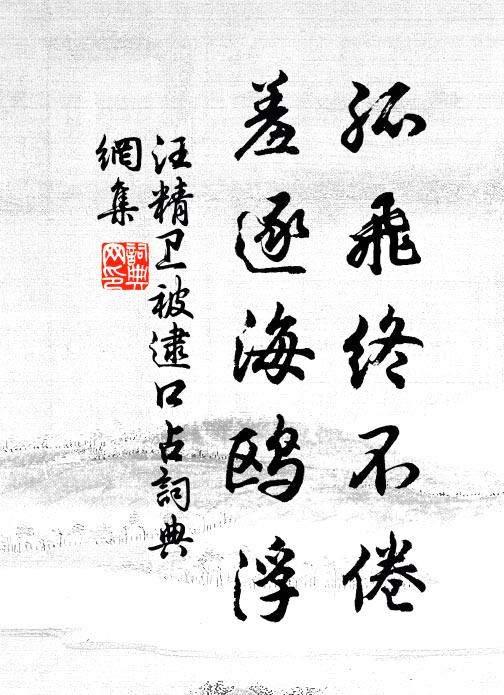 孤飛終不倦
羞逐海鸥浮
汪精卫被逮口占詞典
網集
詞典
网印